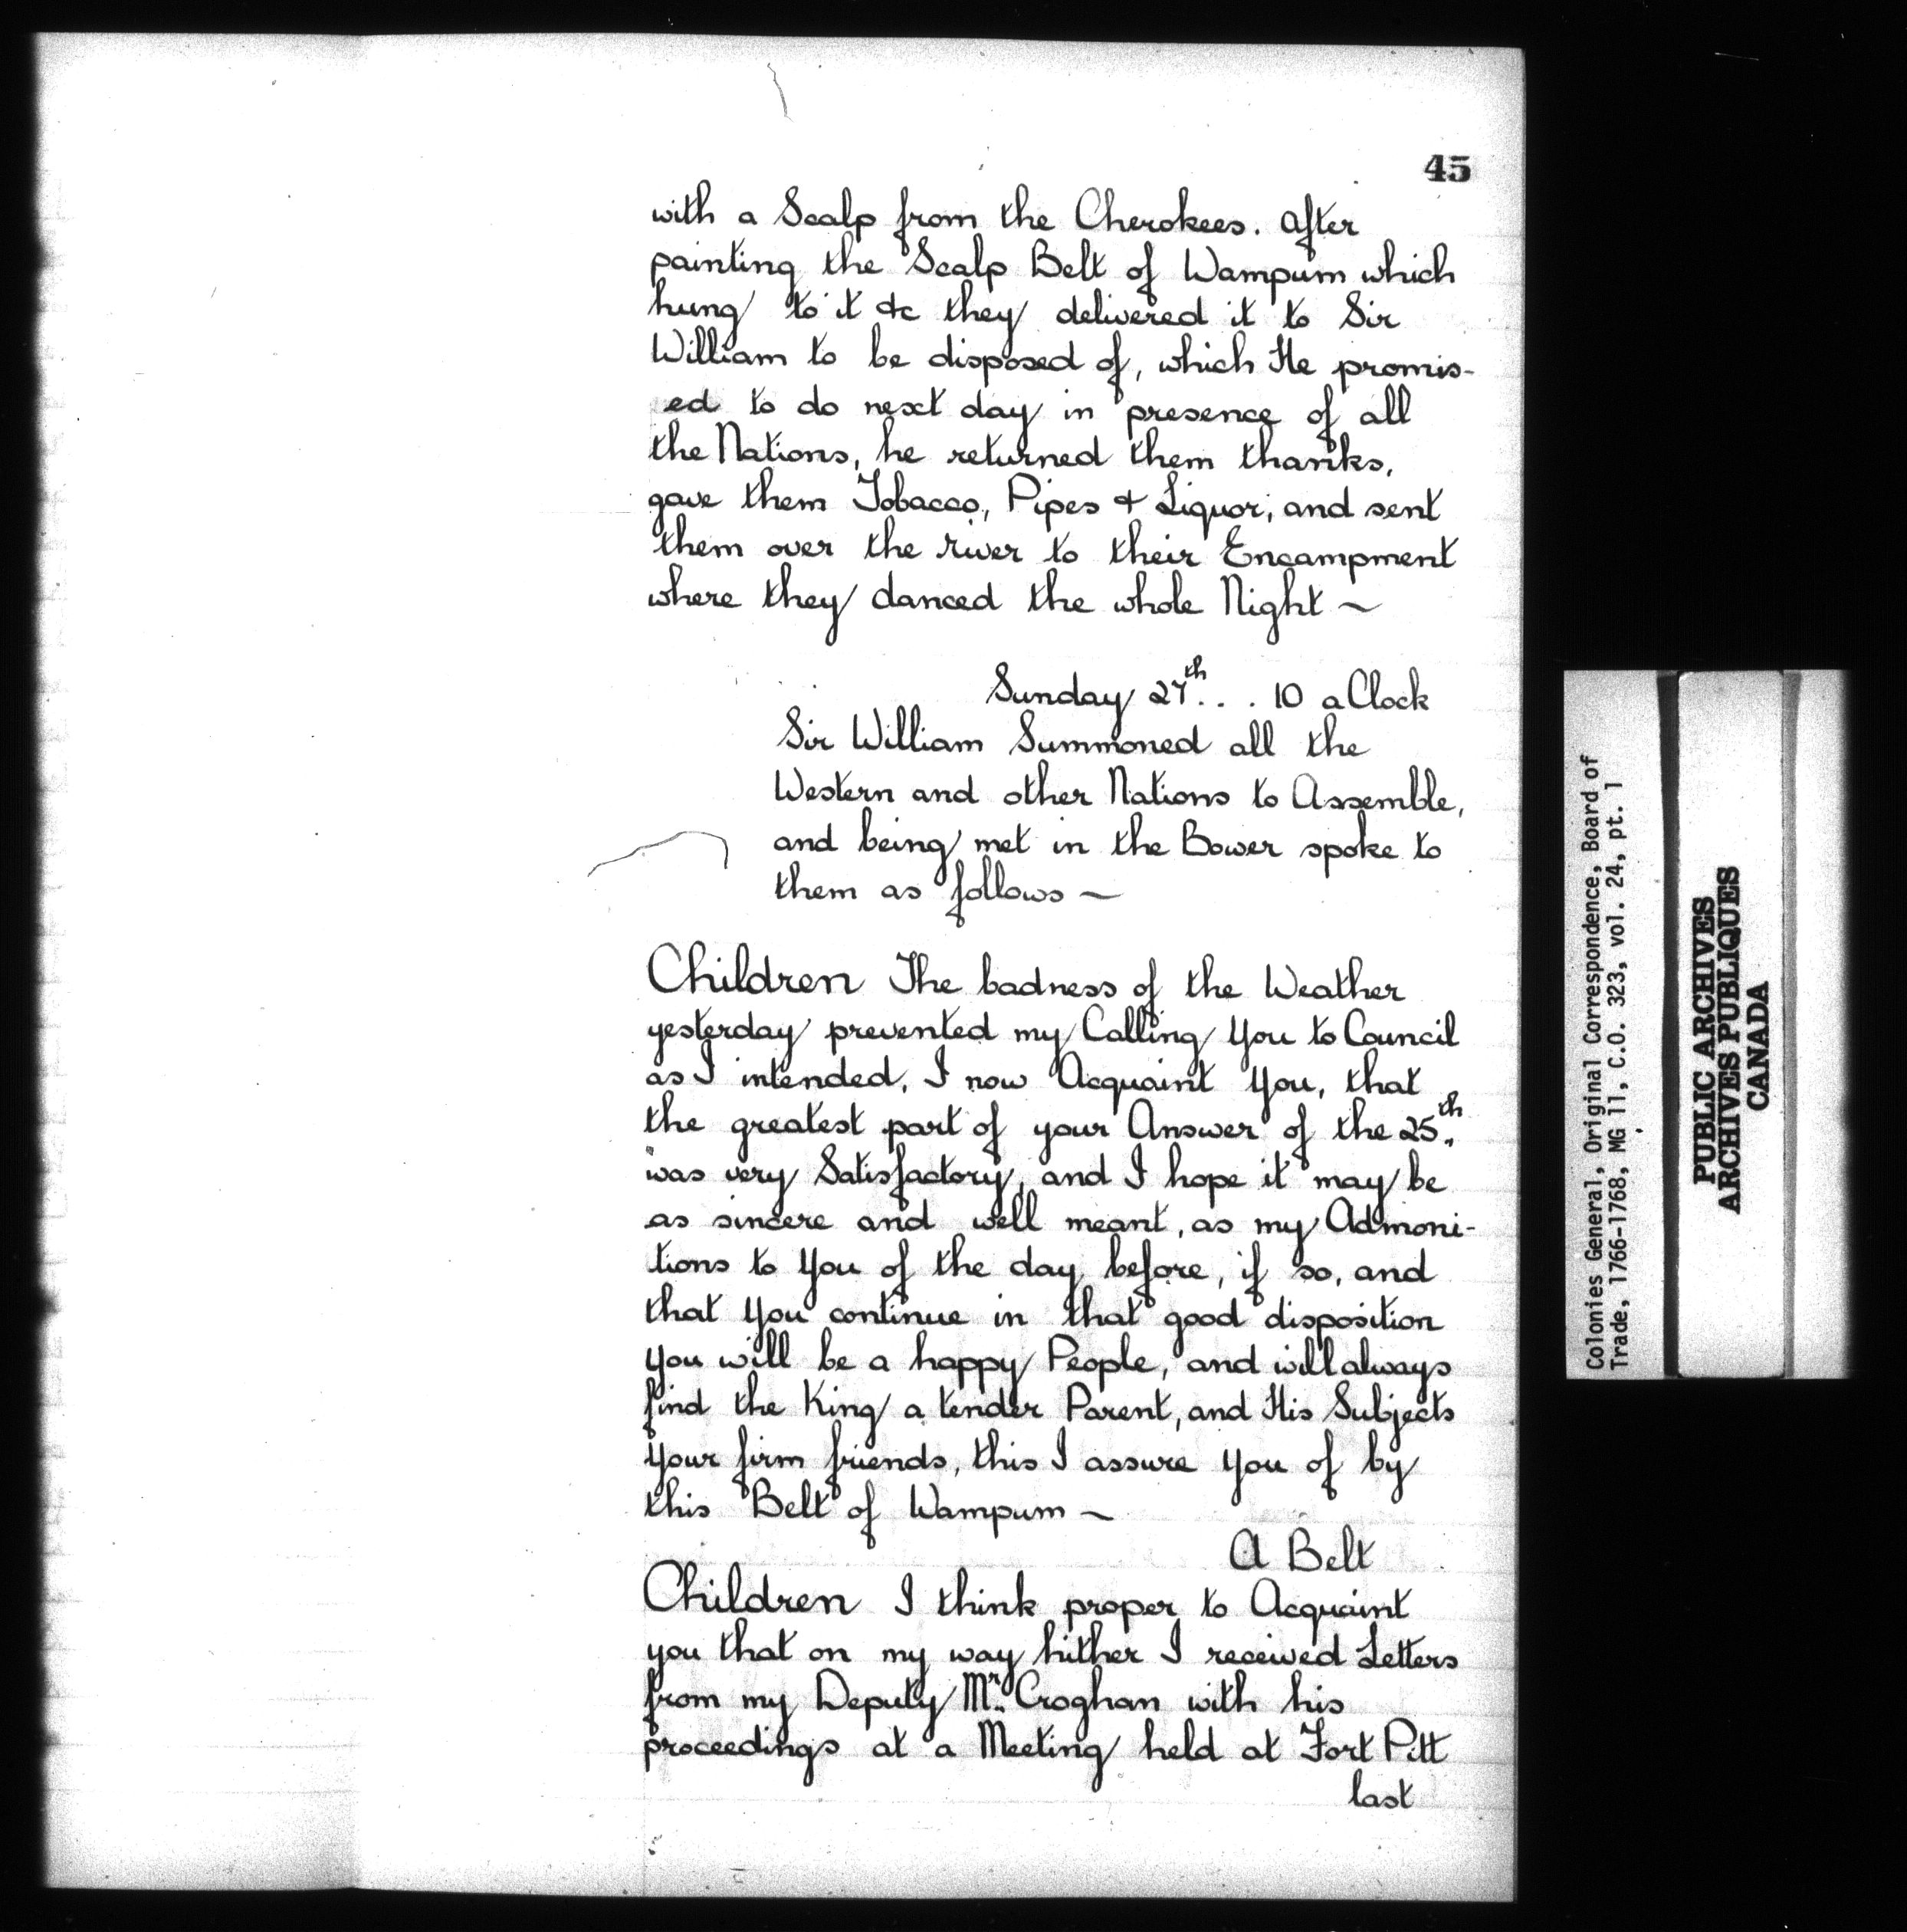 45
with a Scalp from the Cherokees. After
painting the Scalp Belt of Wampum which
hung to it &c they delivered it to Sir
William to be disposed of, which He promis-
ed to do next day in presence of all
the Nations, he returned them thanks,
gave them Tobacco, Pipes & Liquor; and sent
them over the river to their Encampment
where they danced the whole Night ~
Sunday 27th. . . 10 a Clock
Sir William Summoned all the
Western and other Nations to Assemble,
and being met in the Bower spoke to
them as follows ~
Children The badness of the Weather
yesterday prevented my Calling You to Council
as I intended, I now Acquaint You, that
the greatest part of your Answer of the 25th.
was very Satisfactory, and I hope it may be
as sincere and well meant, as my Admoni-
tions to You of the day before, if so, and
that You continue in that good disposition
You will be a happy People, and will always
find the King a tender Parent, and His Subjects
Your firm friends, this I assure You of by
this Belt of Wampum ~
A Belt
Children I think proper to Acquaint
you that on my way hither I received Letters
from my Deputy Mr. Croghan with his
proceedings at a Meeting held at Fort Pitt
last
Colonies General, Original Correspondence, Board of
Trade, 1766-1768, MG 11, C.O. 323, vol. 24, pt. 1
PUBLIC ARCHIVES
ARCHIVES PUBLIQUES
CANADA